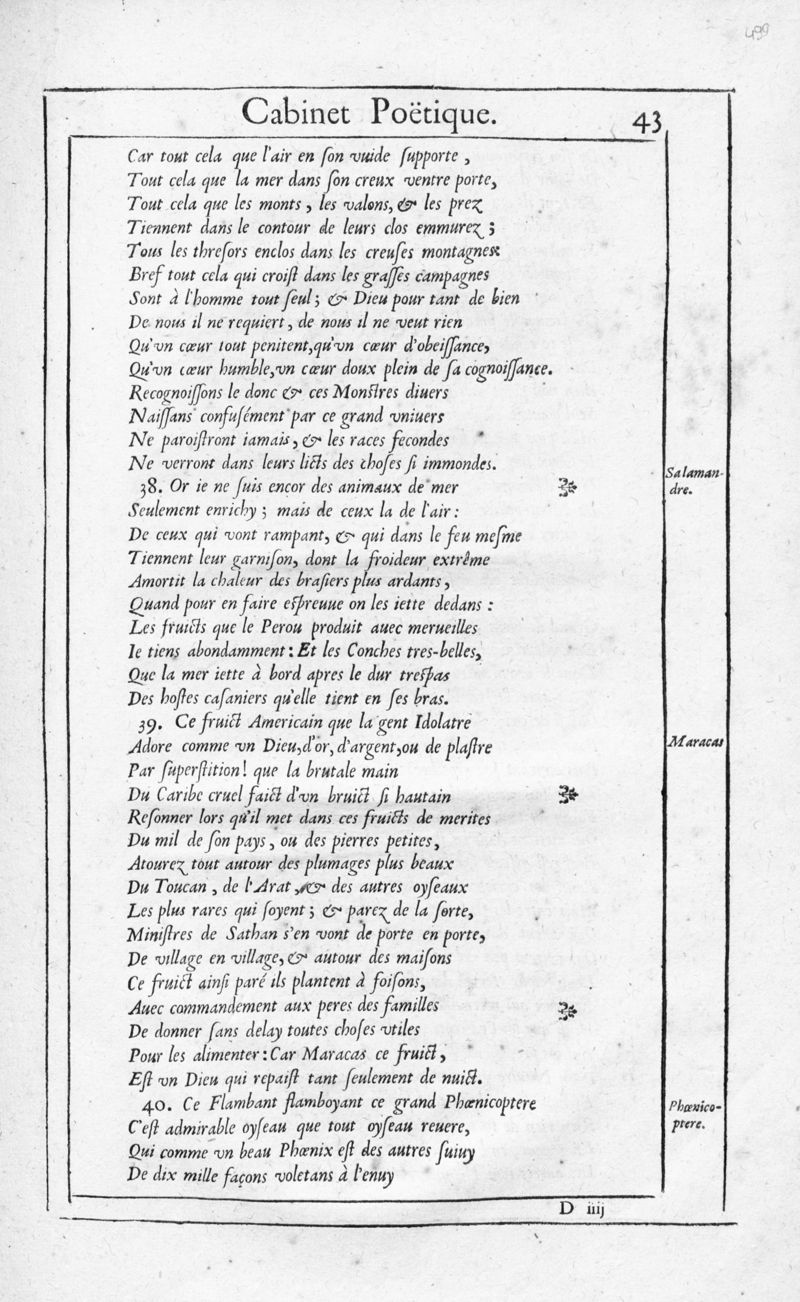 499
Cabinet Poëtique. 43
Car tout cela que l'air en ſon vuide ſupporte ,
Tout cela que la mer dans ſon creux ventre porte,
Tout cela que les monts , les valons, & les prez
Tiennent dans le contour de leurs clos emmurez ;
Tous les threſors enclos dans les creuſes montagnes
Bref tout cela qui croiſt dans les graſſes campagnes
Sont à l'homme tout ſeul ; & Dieu pour tant de bien
De nous il ne requiert, de nous il ne veut rien
Qu'vn cœur tout penitent,qu'vn cœur d'obeiſſance,
Qu'vn cœur humble,vn cœur doux plein de ſa cognoiſſance.
Recognoiſſons le donc & ces Monſtres diuers
Naiſſans confuſément par ce grand vniuers
Ne paroiſtront iamais, & les races fecondes
Ne verront dans leurs licts des choſes ſi immondes.
38. Or ie ne ſuis encor des animaux de mer
Salaman-
dre.
Seulement enrichy ; mais de ceux la de l'air :
De ceux qui vont rampant, & qui dans le feu meſme
Tiennent leur garniſon, dont la froideur extrême
Amortit la chaleur des braſiers plus ardants ,
Quand pour en faire eſpreuue on les iette dedans :
Les fruicts que le Perou produit auec merueilles
Ie tiens abondamment : Et les Conches tres-belles,
Que la mer iette à bord apres le dur treſpas
Des hoſtes caſaniers qu'elle tient en ſes bras.
39. Ce fruict Americain que la gent Idolatre
Adore comme vn Dieu,d'or, d'argent,ou de plaſtre
Maracas
Par ſuperſtition ! que la brutale main
Du Caribe cruel faict d'vn bruict ſi hautain
Reſonner lors qu'il met dans ces fruicts de merites
Du mil de ſon pays , ou des pierres petites,
Atourez tout autour des plumages plus beaux
Du Toucan , de l'Arat , & des autres oyſeaux
Les plus rares qui ſoyent ; & parez de la ſorte,
Miniſtres de Sathan s'en vont de porte en porte,
De village en village, & autour des maiſons
Ce fruict ainſi paré ils plantent à foiſons,
Auec commandement aux peres des familles
De donner ſans delay toutes choſes vtiles
Pour les alimenter : Car Maracas ce fruict ,
Eſt vn Dieu qui repaiſt tant ſeulement de nuict.
40. Ce Flambant flamboyant ce grand Phœnicoptere
Phœnico-
ptere.
C'eſt admirable oyſeau que tout oyſeau reuere,
Qui comme vn beau Phœnix eſt des autres ſuiuy
De dix mille façons voletans à l'enuy
D iiij